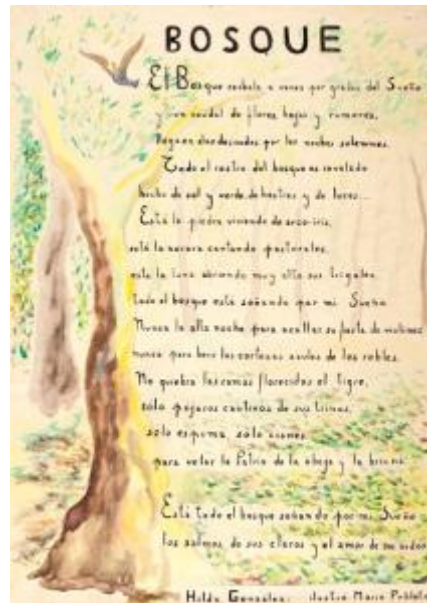 BOSQUE
El Bosque resbala a veces por gracia del Sueño
y con caudal de flores hojas y rumores,
llegan por las noches solemnes.
Todo el rostro del bosque es revelado
hecho de sol y verde, de hostias y de loros...
Está la piedra viviendo de arco-iris,
está la acacia cantando pastorales,
está la luna abriendo muy alto sus trigales,
todo el bosque está soñando por mi Sueño
Nunca la alta noche para acallar su de violines
nunca para las cortezas azules de los robles.
No quiebra las ramas florecidas el tigre,
sólo pájaros cautivos de sus trinos,
sólo espuma, sólo
para velar la Patria de la abeja y la
Está todo el bosque soñando por mi Sueño
los salmos de sus claros y el amor de sus nidos
Hilda Gonzales: ilustró Mario